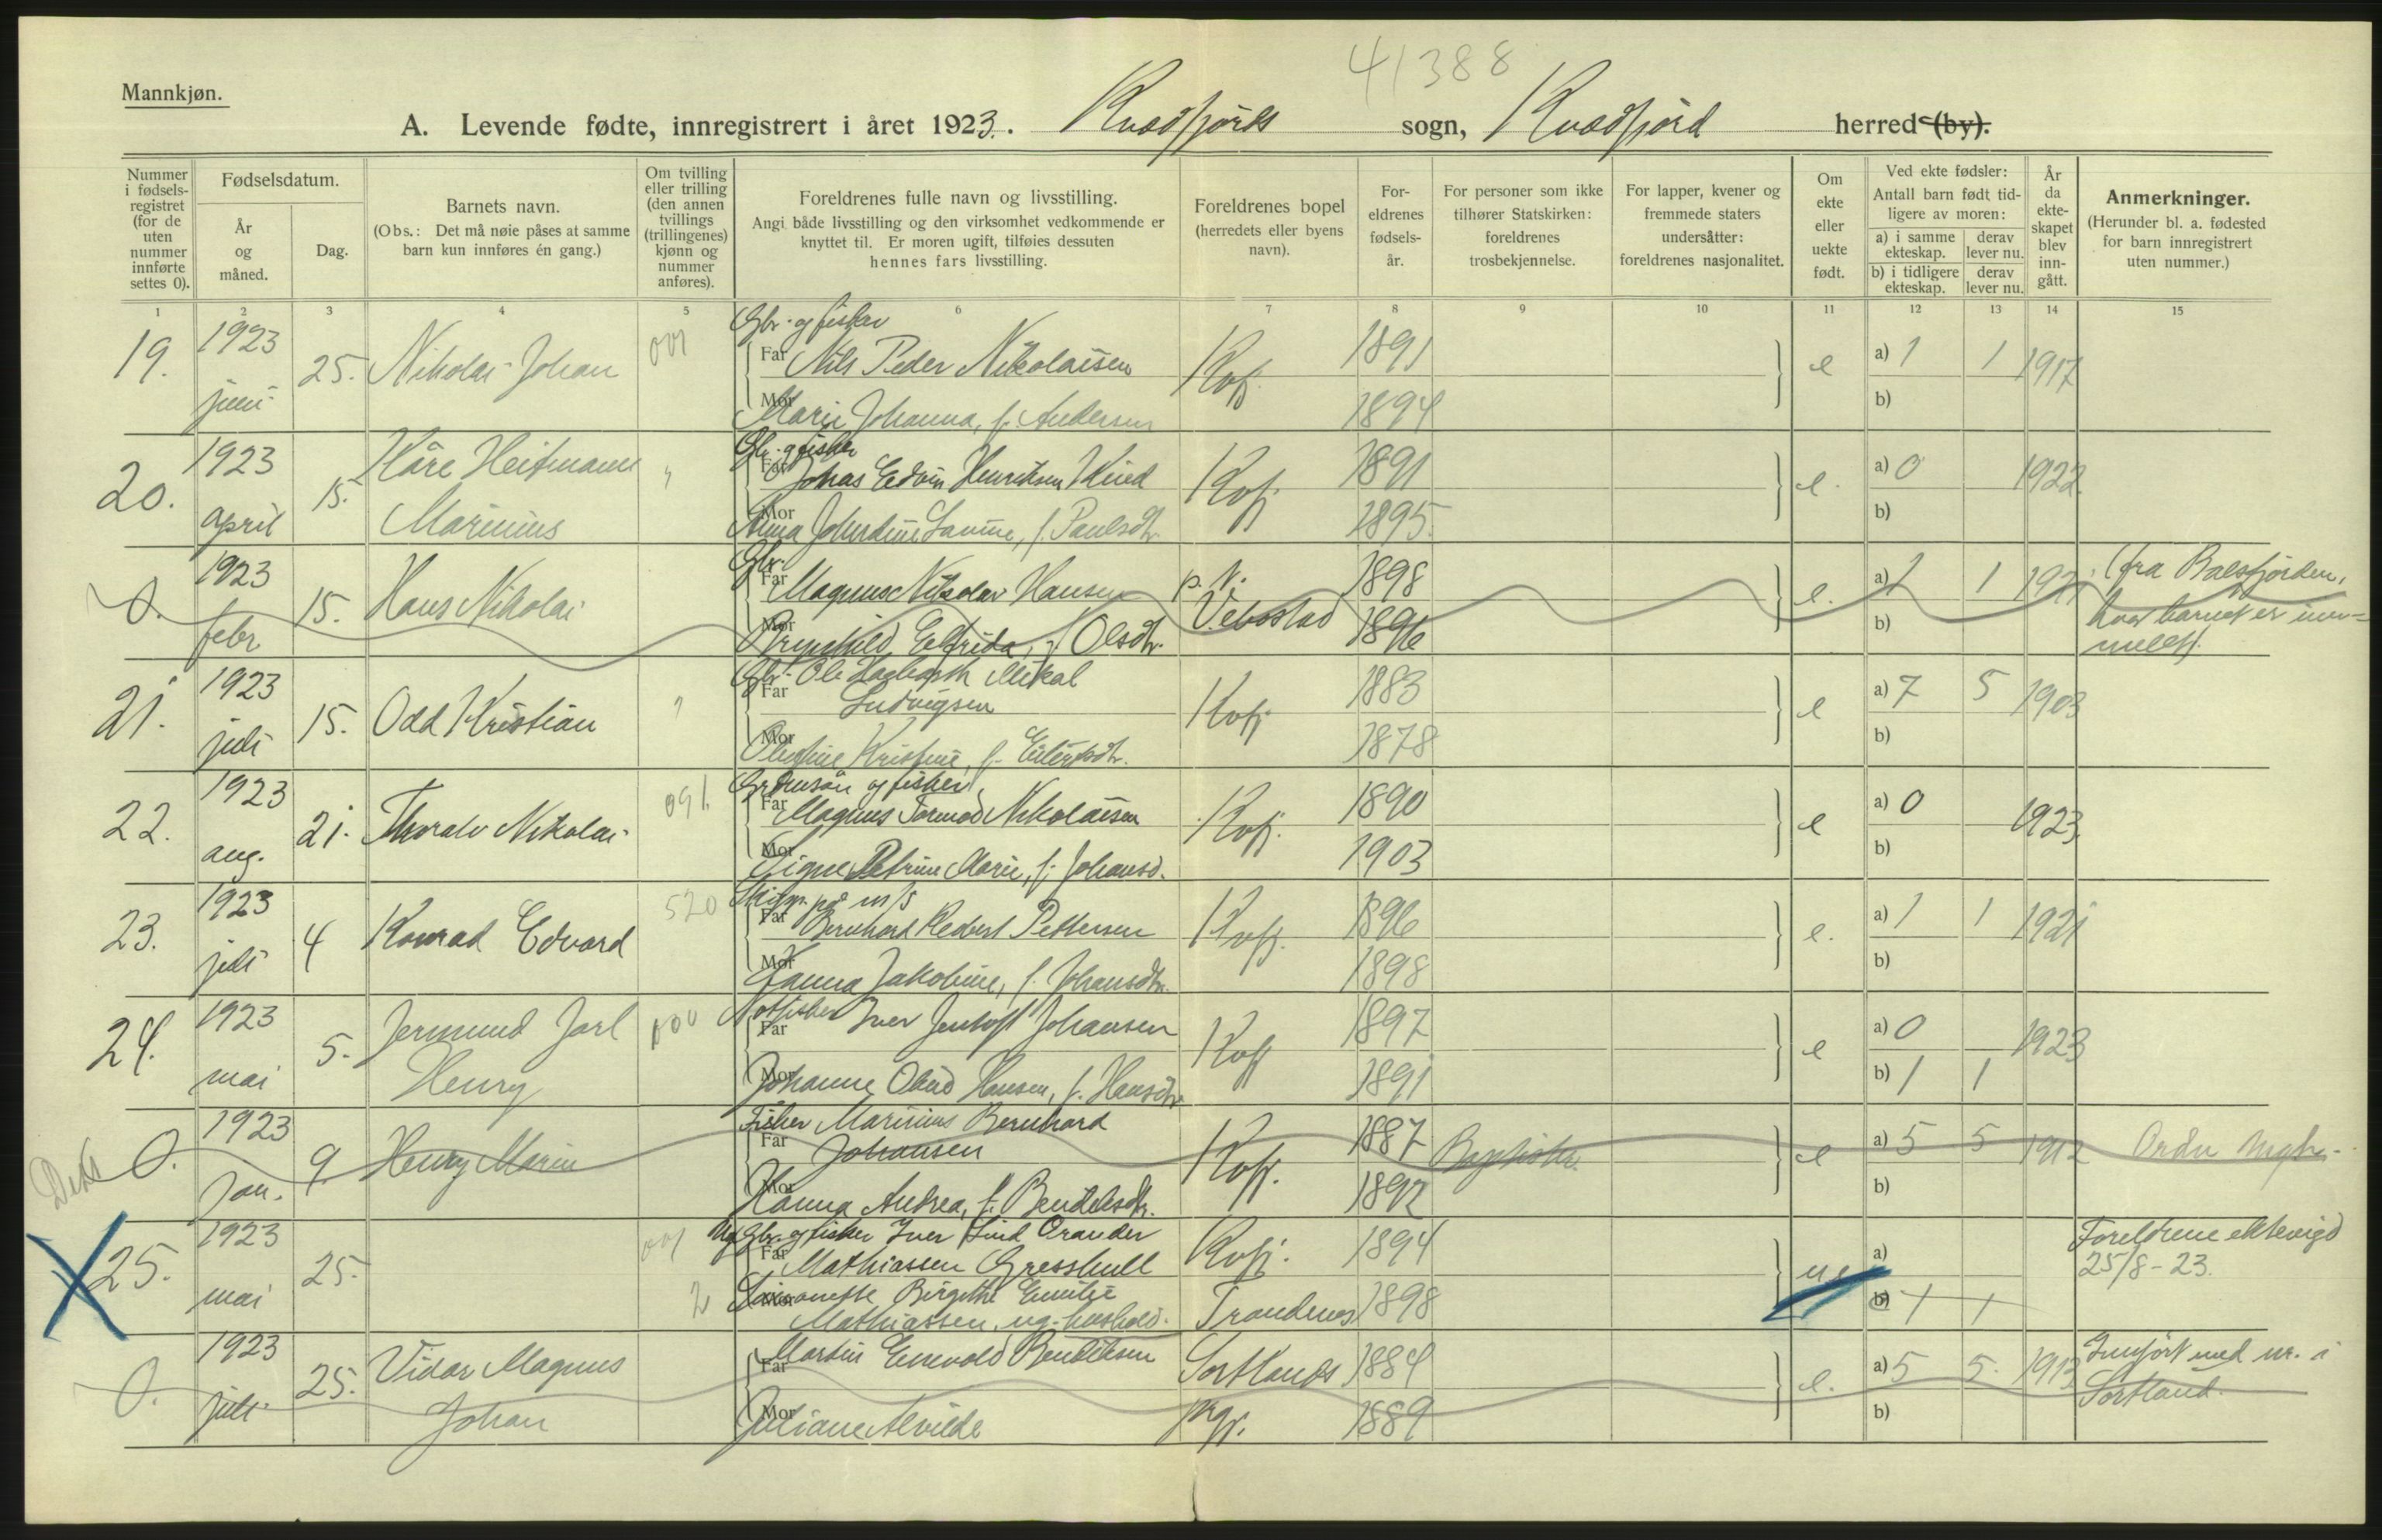 41388
Mannkjøn.
A. Levende fødte, innregistrert i året 1923. Kvædfjords sogn, Kvædfjord herred (by).
Nummer i fødsels-registret (for de uten nummer innførte settes 0).
Fødselsdatum.
År og måned.
Dag.
Barnets navn.
(Obs.: Det må nøie påses at samme barn kun innføres én gang.)
Om tvilling eller trilling (den annen tvillings (trillingenes) kjønn og nummer anføres).
Foreldrenes fulle navn og livsstilling.
Angi både livsstilling og den virksomhet vedkommende er knyttet til. Er moren ugift, tilføies dessuten hennes fars livsstilling.
Foreldrenes bopel (herredets eller byens navn).
For-eldrenes fødsels-år.
For personer som ikke tilhører Statskirken: foreldrenes trosbekjennelse.
For lapper, kvener og fremmede staters undersåtter: foreldrenes nasjonalitet.
Om ekte eller uekte født.
Ved ekte fødsler: Antall barn født tid-ligere av moren:
a) i samme ekteskap. derav lever nu.
b) i tidligere ekteskap. derav lever nu.
År da ekte-skapet blev inn-gått.
Anmerkninger.
(Herunder bl. a. fødested for barn innregistrert uten nummer.)
1 2 3 4 5 6 7 8 9 10 11 12 13 14 15
Gbr. og fisker
19. 1923 juni 25. Nikolai Johan 001 Far Nils Peder Nikolaisen Kvfj. 1891 e a) 1 1 1917
Mor Marie Johanna, f. Andersen 1894 b)
Gbr. og fisker
20. 1923 april 15. Kåre Heitmann Marinius " Far Johas Edvin Henriksen Kived Kvfj. 1891 e. a) 0 1922
Mor Anna Johardine Lavine, f. Paulsdtr. 1895. b)
Gbr.
0. 1923 febr 15. Hans Nikolai Far Magnus Nikolai Hansen p. t. Vebostad 1898 e. a) 1 1 1921 (fra Balsfjorden, hvor barnet er innmeldt).
Mor Brynhild Elfrida, f. Olsdtr. 1896 b)
Gbr. Ole Hagbarth Mikal
21. 1923 juli 15. Odd Kristian " Far Ludvigsen Kvfj. 1883 e a) 7 5 1903
Mor Olufine Kristine, f. Eilertsdtr. 1878 b)
Grdmsøn og fisker
22. 1923 aug. 21. Thoralv Nikolai 091. Far Magnus Tormod Nikolaisen Kvfj. 1890 e a) 0 1923
Mor Signe Petrine Marie, f. Johansd. 1903 b)
Skipr. på m/s
23. 1923 juli 4 Konrad Edvard 520 Far Bernhard Redert Pettersen Kvfj. 1896 e. a) 1 1 1921
Mor Hanna Jakobine, f. Johansdtr. 1898 b)
24. 1923 mai 5. Jermund Jarl Henry 000 Notfisker Far Iver Jentoft Johansen Kvfj 1897 e a) 0 1923
Mor Johanne Olund Hansen, f. Hansdtr 1891 b) 1 1
Fisker Marinius Bernhard
0. 1923 Jan. 9. Henry Marin Far Johansen Kvfj. 1887 Baptister e a) 5 5 1912
Mor Hanna Andrea, f. Bendiksdtr. 1892 b)
Ug. Gbr. og fisker Iver Lind Orander
25. 1923 mai 25. 001 Far Mathiassen Gresshull Kvfj. 1894 ue a) Foreldrene ektevigd 25/8-23.
2 Mor Simonette Birgithe Emilie Mathiassen, ug. hushold. Trondenes 1898 b) 1 1
0. 1923 juli 25. Vidar Magnus Johan Far Martin Enevold Bendiksen Sortlands prgj. 1884 e. a) 5 5. 1913 Innført med nr. i Sortland.
Mor Juliane Alvilde 1889 b)